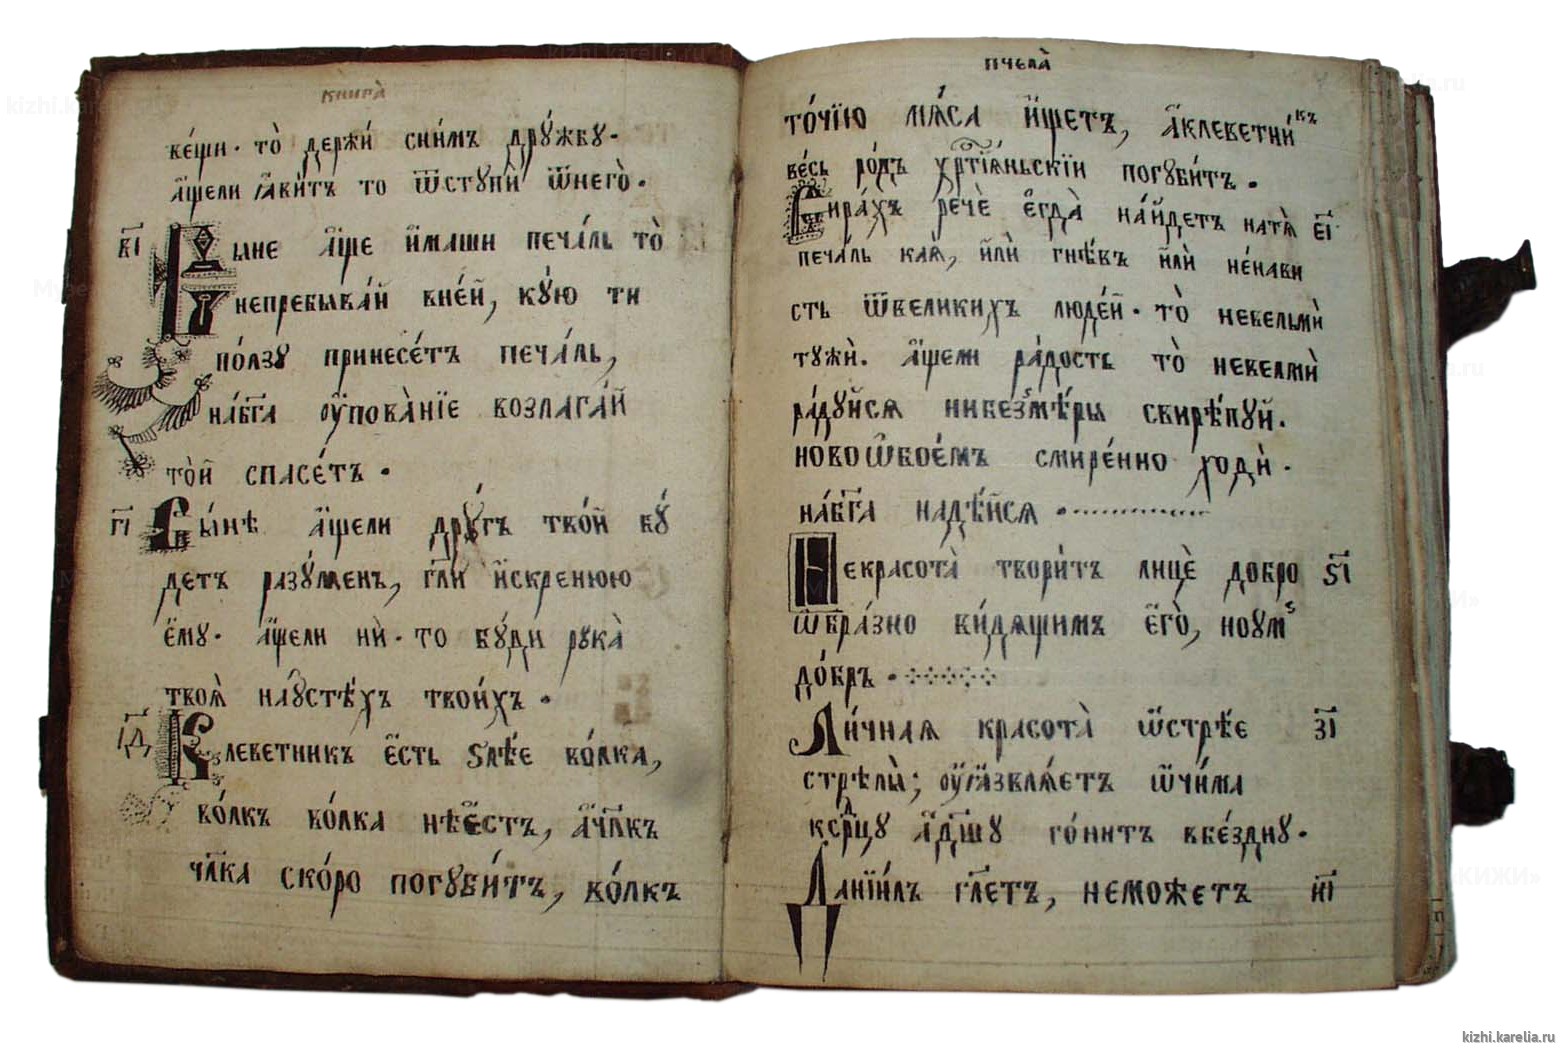 книга̀
ве́щи. то̀ держи́ сни́мъ дрꙋ́жбꙋ.
а҆́щели ꙗ҆ви́тъ то ѿстꙋпѝ ѿнегѡ̀.
в҃і
ы́не а҆́ще и҆́маши печа́ль то̀
непребыва́й вне́й, кꙋ́ю ти
по́лзꙋ принесе́тъ печа́ль,
на́бг҃а ᲂу҆пова̀нїе возлага́й
то́й спасе́тъ.
г҃і Сы́нѣ а҆́щели дрꙋ́гъ тво́й бꙋ́
детъ разꙋ́менъ, гл҃и и҆́скренюю
є҆мꙋ̀. а҆́щели нѝ. то бꙋ́ди рꙋка̀
твоѧ̀ наꙋстѣ́хъ твои́хъ.
д҃і Клеветникъ є҆́сть ѕлѣ́е во́лка,
во́лкъ во́лка нѣе҆́стъ, а҆чл҃вкъ
чл҃ка ско́ро погꙋби́тъ, во́лкъ
пчела̀
то́чїю мѧ́са и҆́щетъ, а҆клеветни́къ
ве́сь ро́дъ хрⷭ҇тїѧ́ньскїи погꙋби́тъ.
Сира́хъ речѐ є҆гда̀ на́йдетъ натѧ̀ є҃і
печа́ль каѧ̀, и҆лѝ гнѣ́въ и҆лѝ не́нави
сть ѿвеликихъ люде́й. то̀ невельмѝ
тꙋжѝ. а҆́щели ра́дость то̀ невелмѝ
ра́дꙋйсѧ нибезмѣ́ры свирѣ́пꙋй.
новоѡ҆бое́мъ смире́нно ходѝ.
на́бг҃а надѣ́йсѧ
Некрасота̀ твори́тъ лицѐ добро ѕ҃і
ѡ҆бра́зно ви́дѧщимъ є҆го̀, ноумъ
до́бръ.
Ли́чнаѧ красота̀ ѻ҆стрѣ́е з҃і
стрѣлы̀; ᲂу҆ꙗзвлѧ́етъ ѻ҆чи́ма
ксрⷣцꙋ а҆дш҃ꙋ го́нитъ вбе́зднꙋ.
Данїи́лъ гл҃етъ, неможетъ и҃і
kizhi.karelia.ru